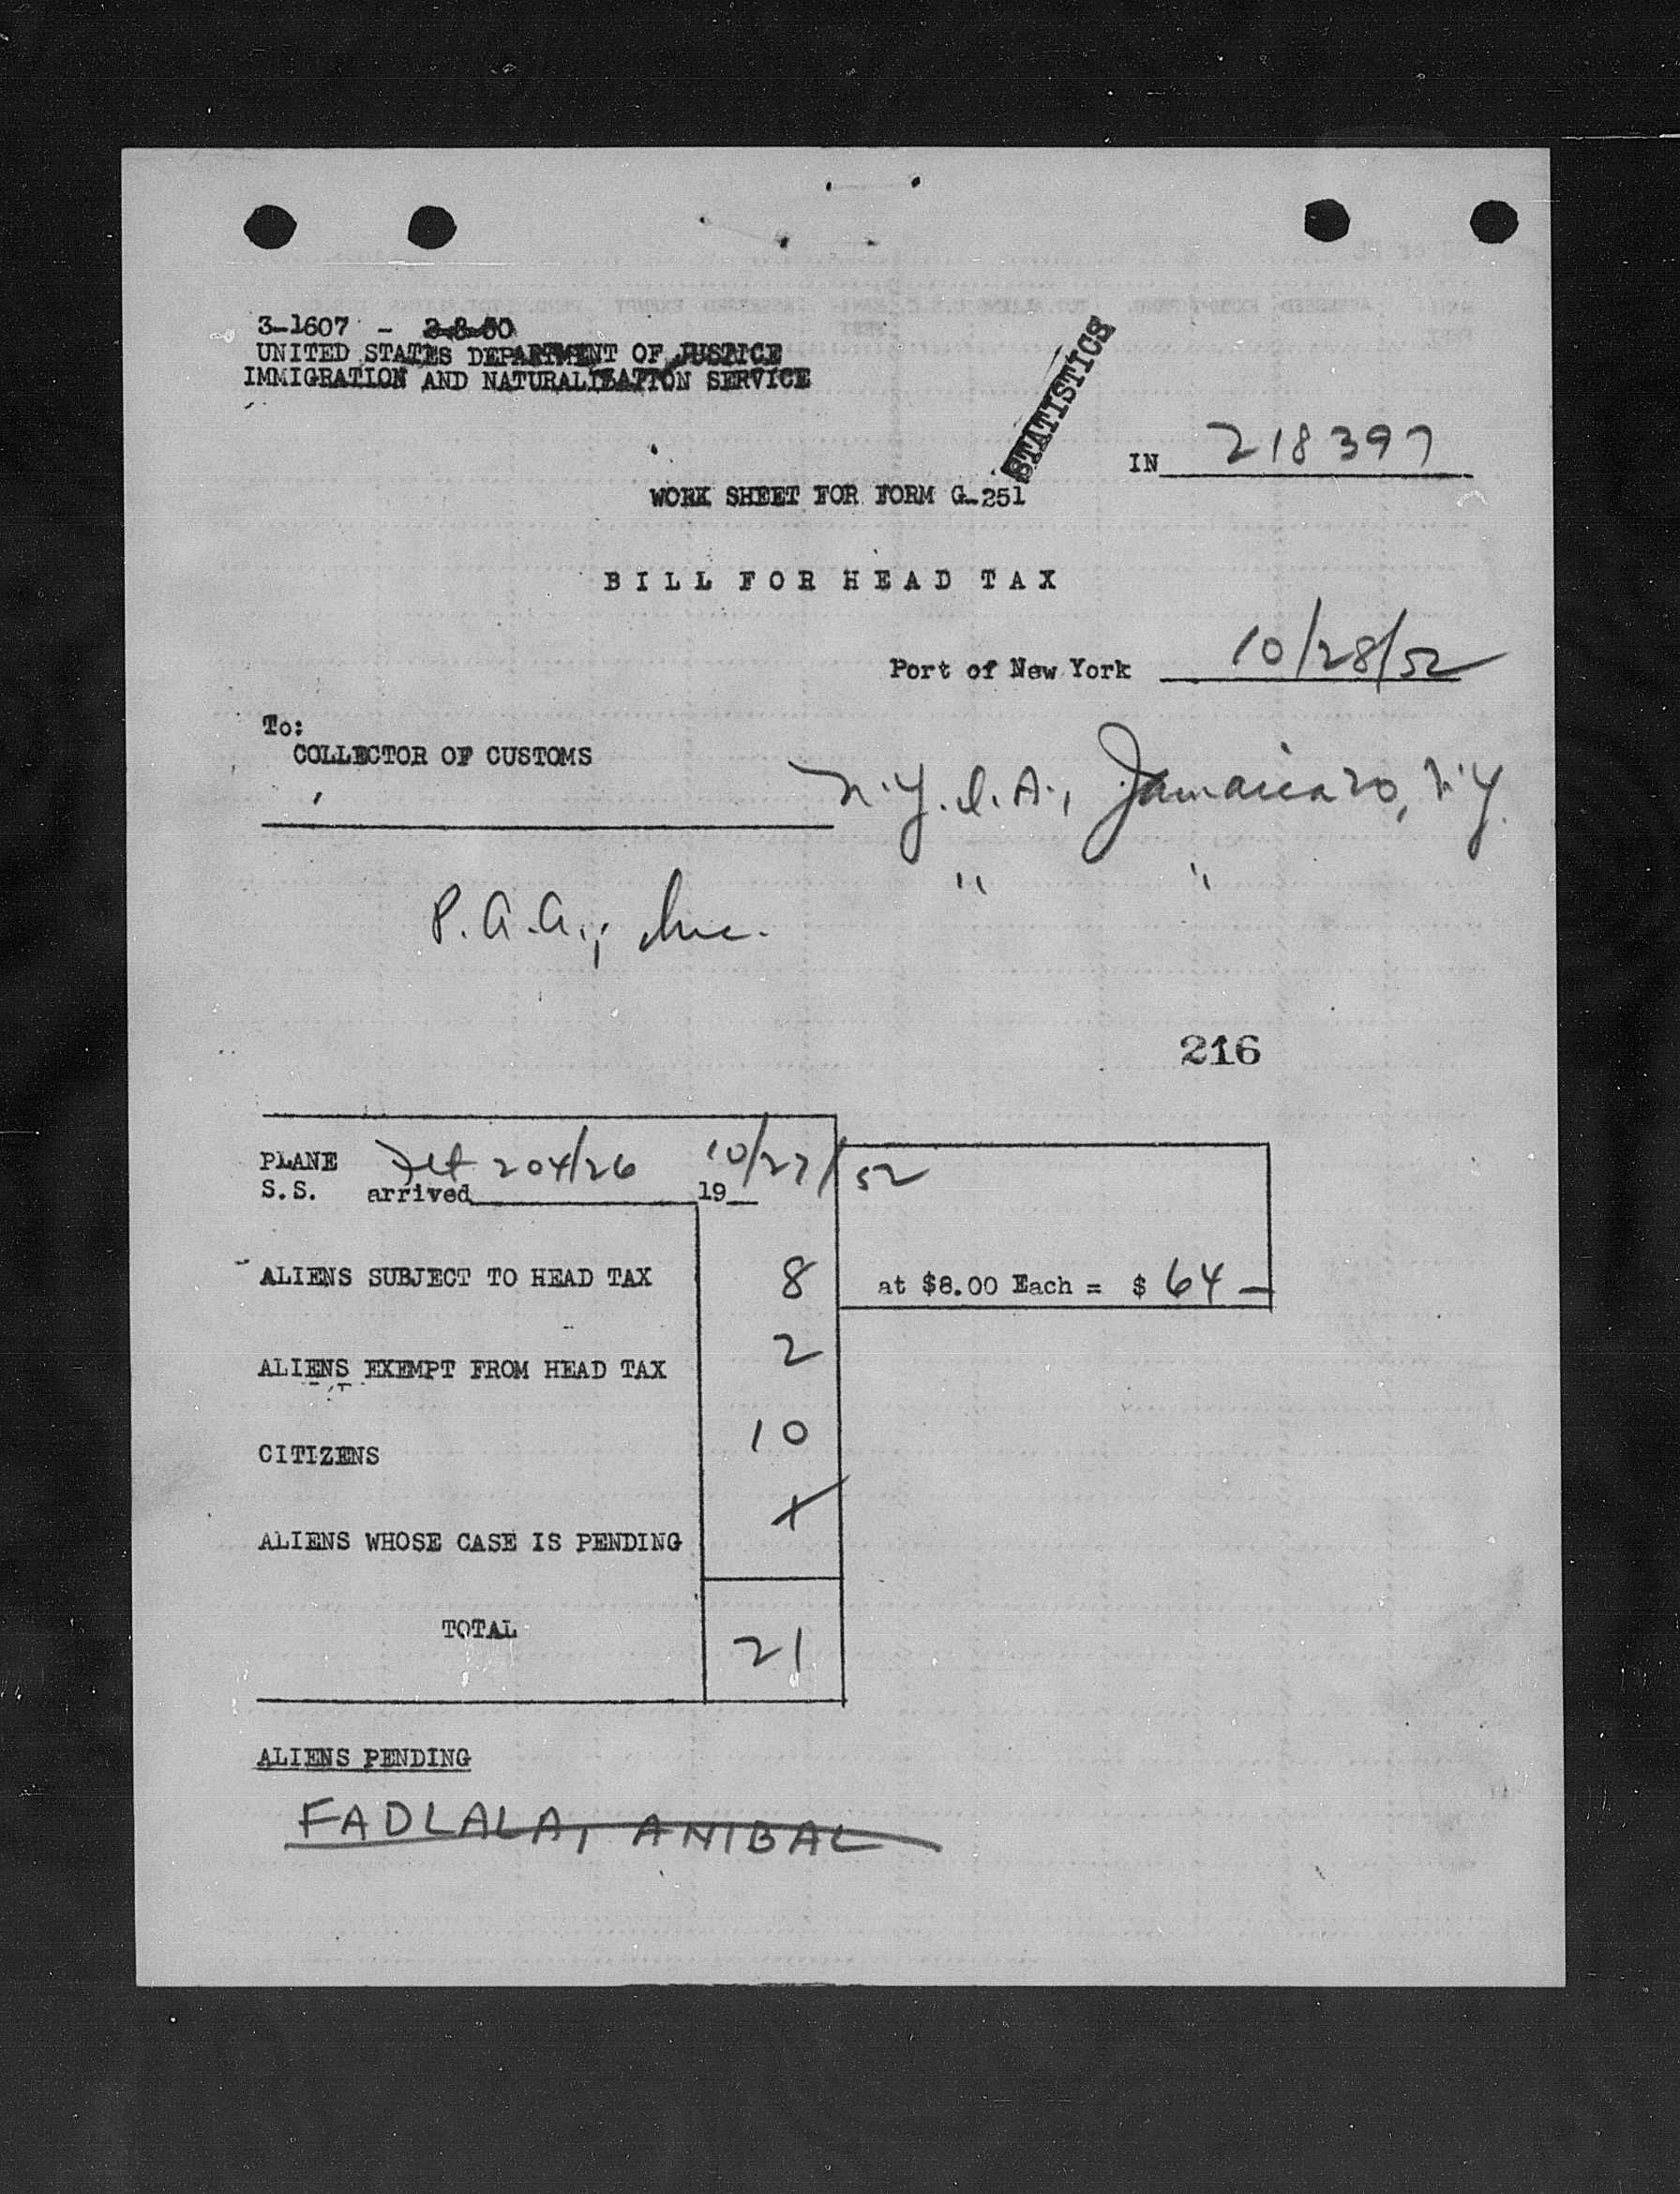 3-1607 - 2-8-50
UNITED STATES DEPARTMENT OF JUSTICE
IMMIGRATION AND NATURALIZATION SERVICE
STATISTICS
IN 218397
WORK SHEET FOR FORM G-251
BILL FOR HEAD TAX
Port of New York 10/28/52
To:
COLLECTOR OF CUSTOMS
N.Y.I.A., Jamaica 20, N.Y.
P.A.A., Inc. " "
216
PLANE Flt 204/26 10/27/52
S.S. arrived 19
ALIENS SUBJECT TO HEAD TAX 8 at $8.00 Each = $ 64 —
ALIENS EXEMPT FROM HEAD TAX 2
CITIZENS 10
ALIENS WHOSE CASE IS PENDING 1
TOTAL 21
ALIENS PENDING
FADLALA, ANIBAL